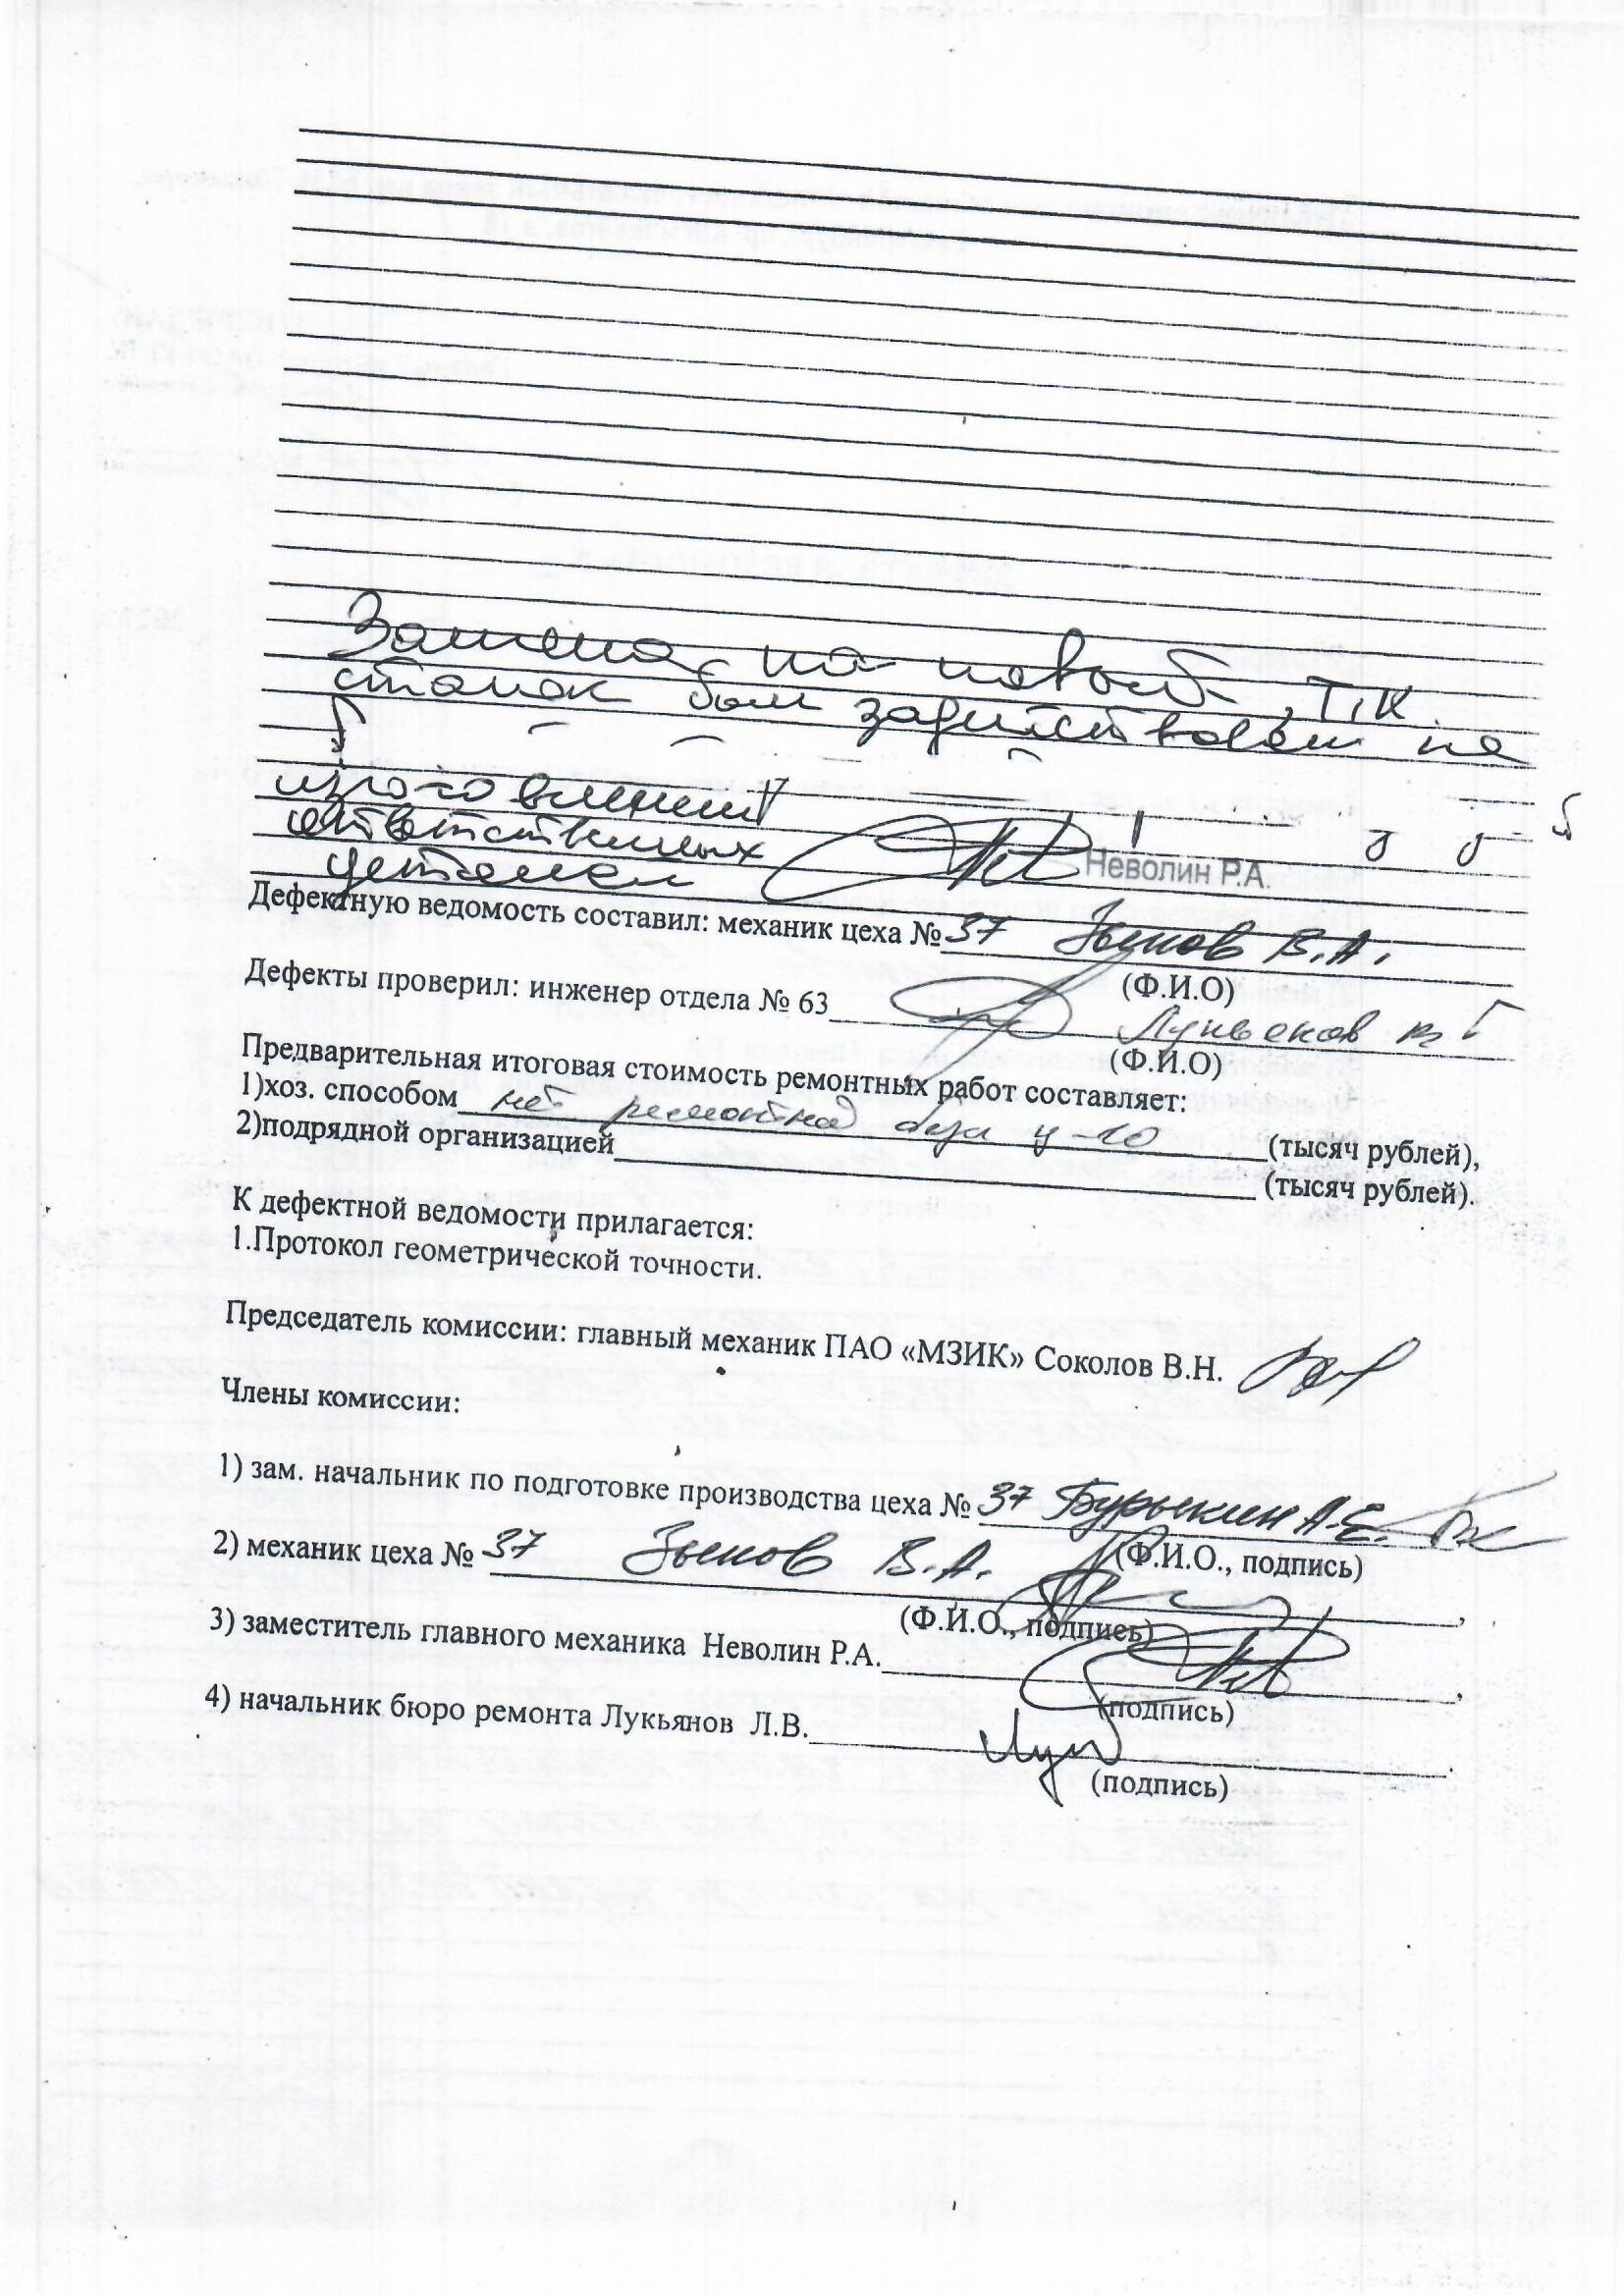 Замена на новый, т.к.
станок был задействован на
изготовлении
ответственных
деталей
Неволин Р.А.
Дефектную ведомость составил: механик цеха № 37 Зыков В.А.
(Ф.И.О)
Дефекты проверил: инженер отдела № 63
(Ф.И.О)
Предварительная итоговая стоимость ремонтных работ составляет:
1)хоз. способом нет ремонтной базы ц-10 (тысяч рублей),
2)подрядной организацией (тысяч рублей).
К дефектной ведомости прилагается:
1.Протокол геометрической точности.
Председатель комиссии: главный механик ПАО «МЗИК» Соколов В.Н.
Члены комиссии:
1) зам. начальник по подготовке производства цеха № 37 Бурыкин А.Е.
(Ф.И.О., подпись)
2) механик цеха № 37 Зыков В.А. ,
(Ф.И.О., подпись)
3) заместитель главного механика Неволин Р.А. ,
(подпись)
4) начальник бюро ремонта Лукьянов Л.В. .
(подпись)